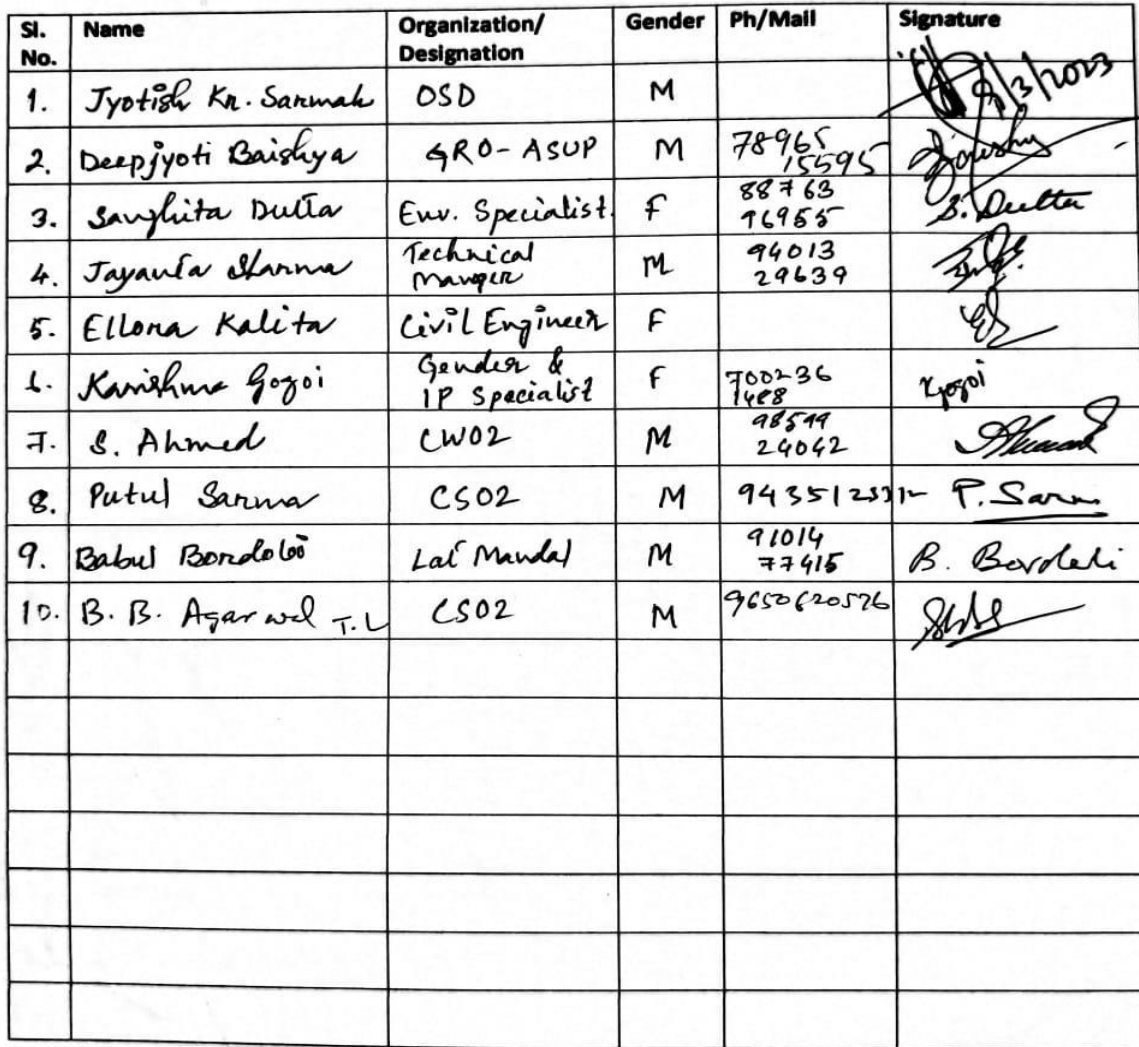 Sl. No. Name Organization/ Designation Gender Ph/Mail Signature
1. Jyotish Kr. Sarmah OSD M 9/3/2023
2. Deepjyoti Baishya GRO-ASUP M 78965 15595
3. Sanghita Dutta Env. Specialist. F 88763 96955 S. Dutta
4. Jayanta Sharma Technical Manager M 94013 29639
5. Ellona Kalita Civil Engineer F
6. Karishma Gogoi Gender & IP Specialist F 700236 Kgogoi
7. S. Ahmed CW02 M 24042
8. Putul Sarma CS02 M P. Sarma
9. Babul Bordoloi Lat Mandal M 91014 77415 B. Bordoloi
10. B. B. Agarwal T.L CS02 M 9650620576